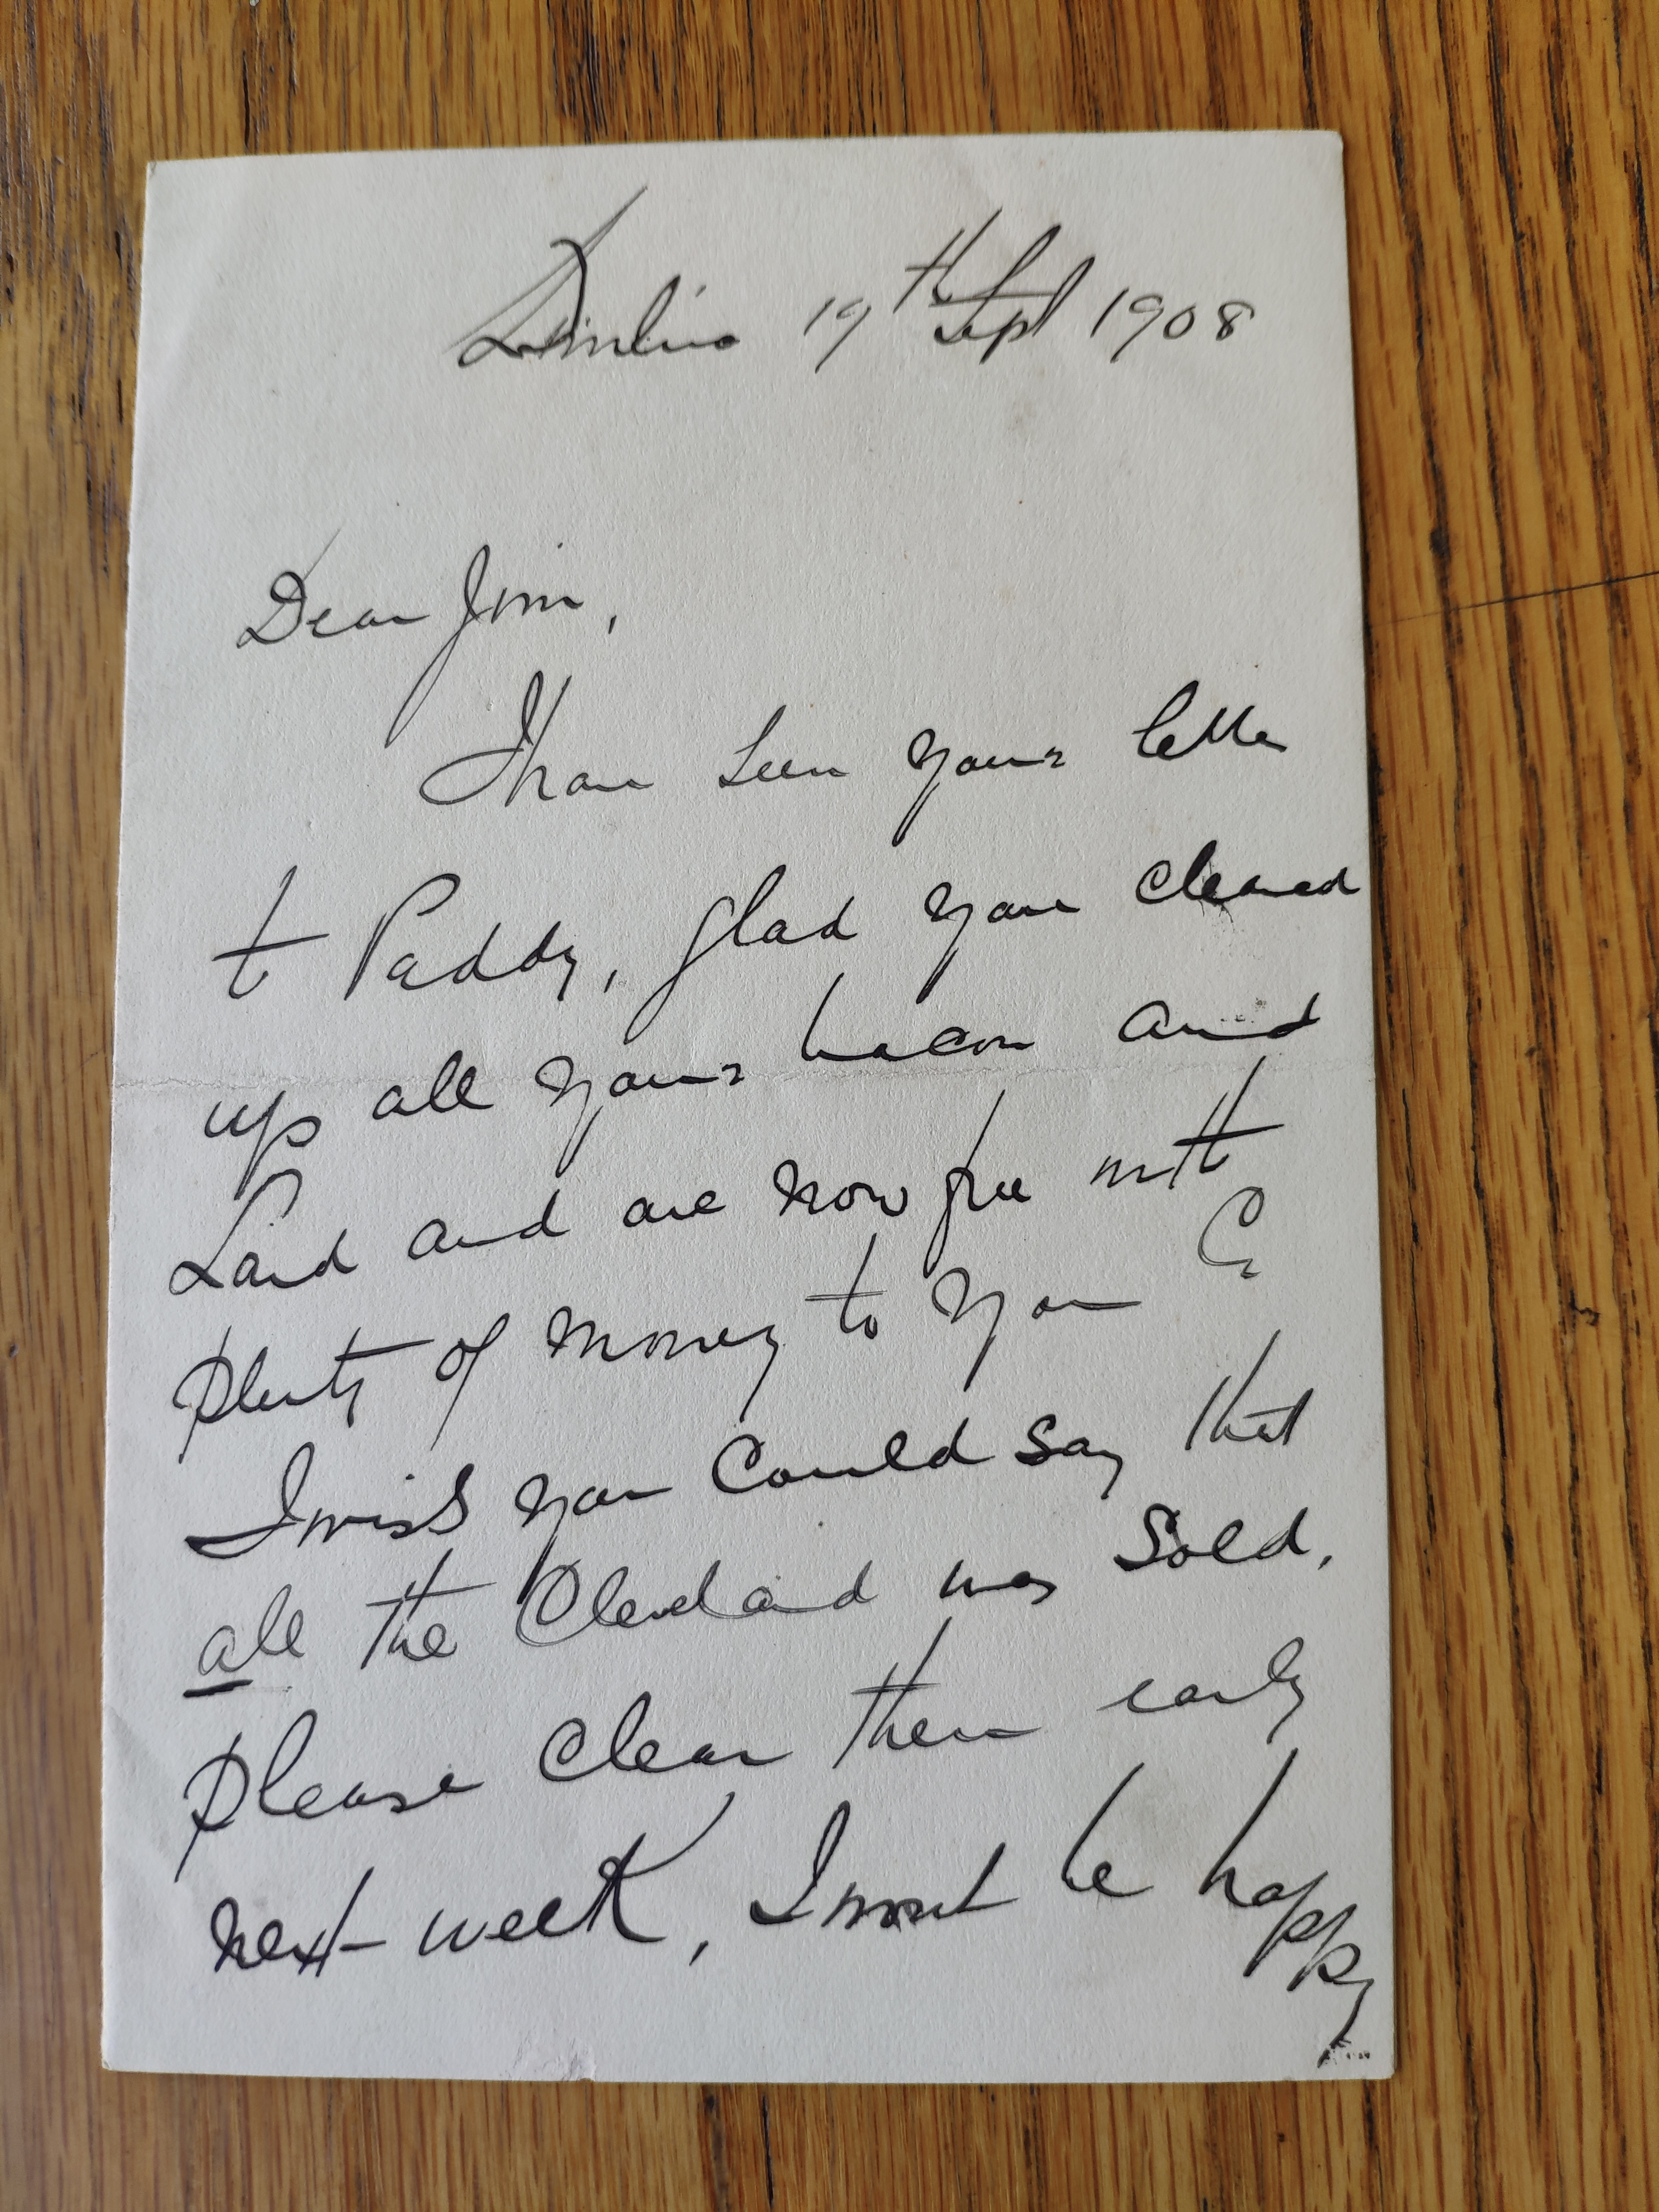 19th Sept 1908
Dear Jim,
I have seen your letter
to Paddy, glad you cleared
up all your bacon and
Lard and are now free with
plenty of money to your Cr
I wish you could say that
all the Cleveland was sold,
please clear them early
next week, I must be happy